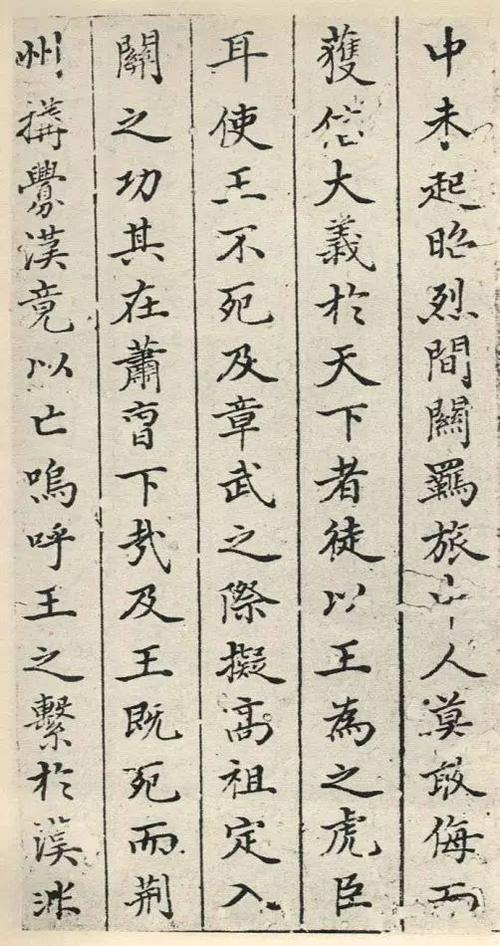 中未起昭烈間關羈旅人莫敢侮而
獲信大義於天下者徒以王為之虎臣
耳使王不死及章武之際擬高祖定入
關之功其在蕭曹下哉及王既死而荆
州搆釁漢竟以亡嗚呼王之繫於漢